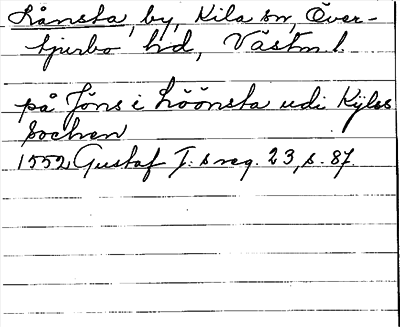 Lånsta, by, Kila sn, Över-
tjurbo hd, Västm. l.
på Jöns i Löönsta udi Kijlss
sochen
1552 Gustaf I:s reg. 23, s. 87.